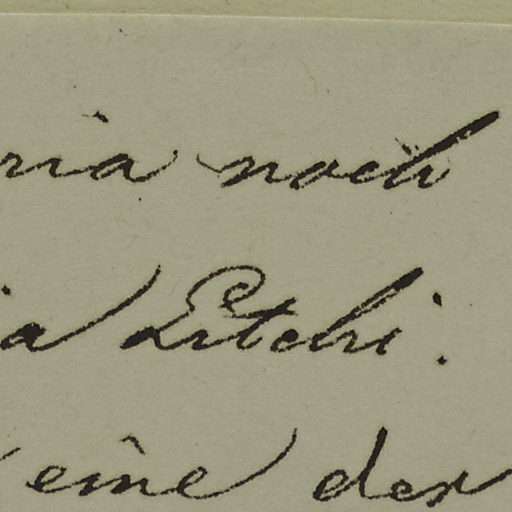 ria noch
ia Litchi.
eine der